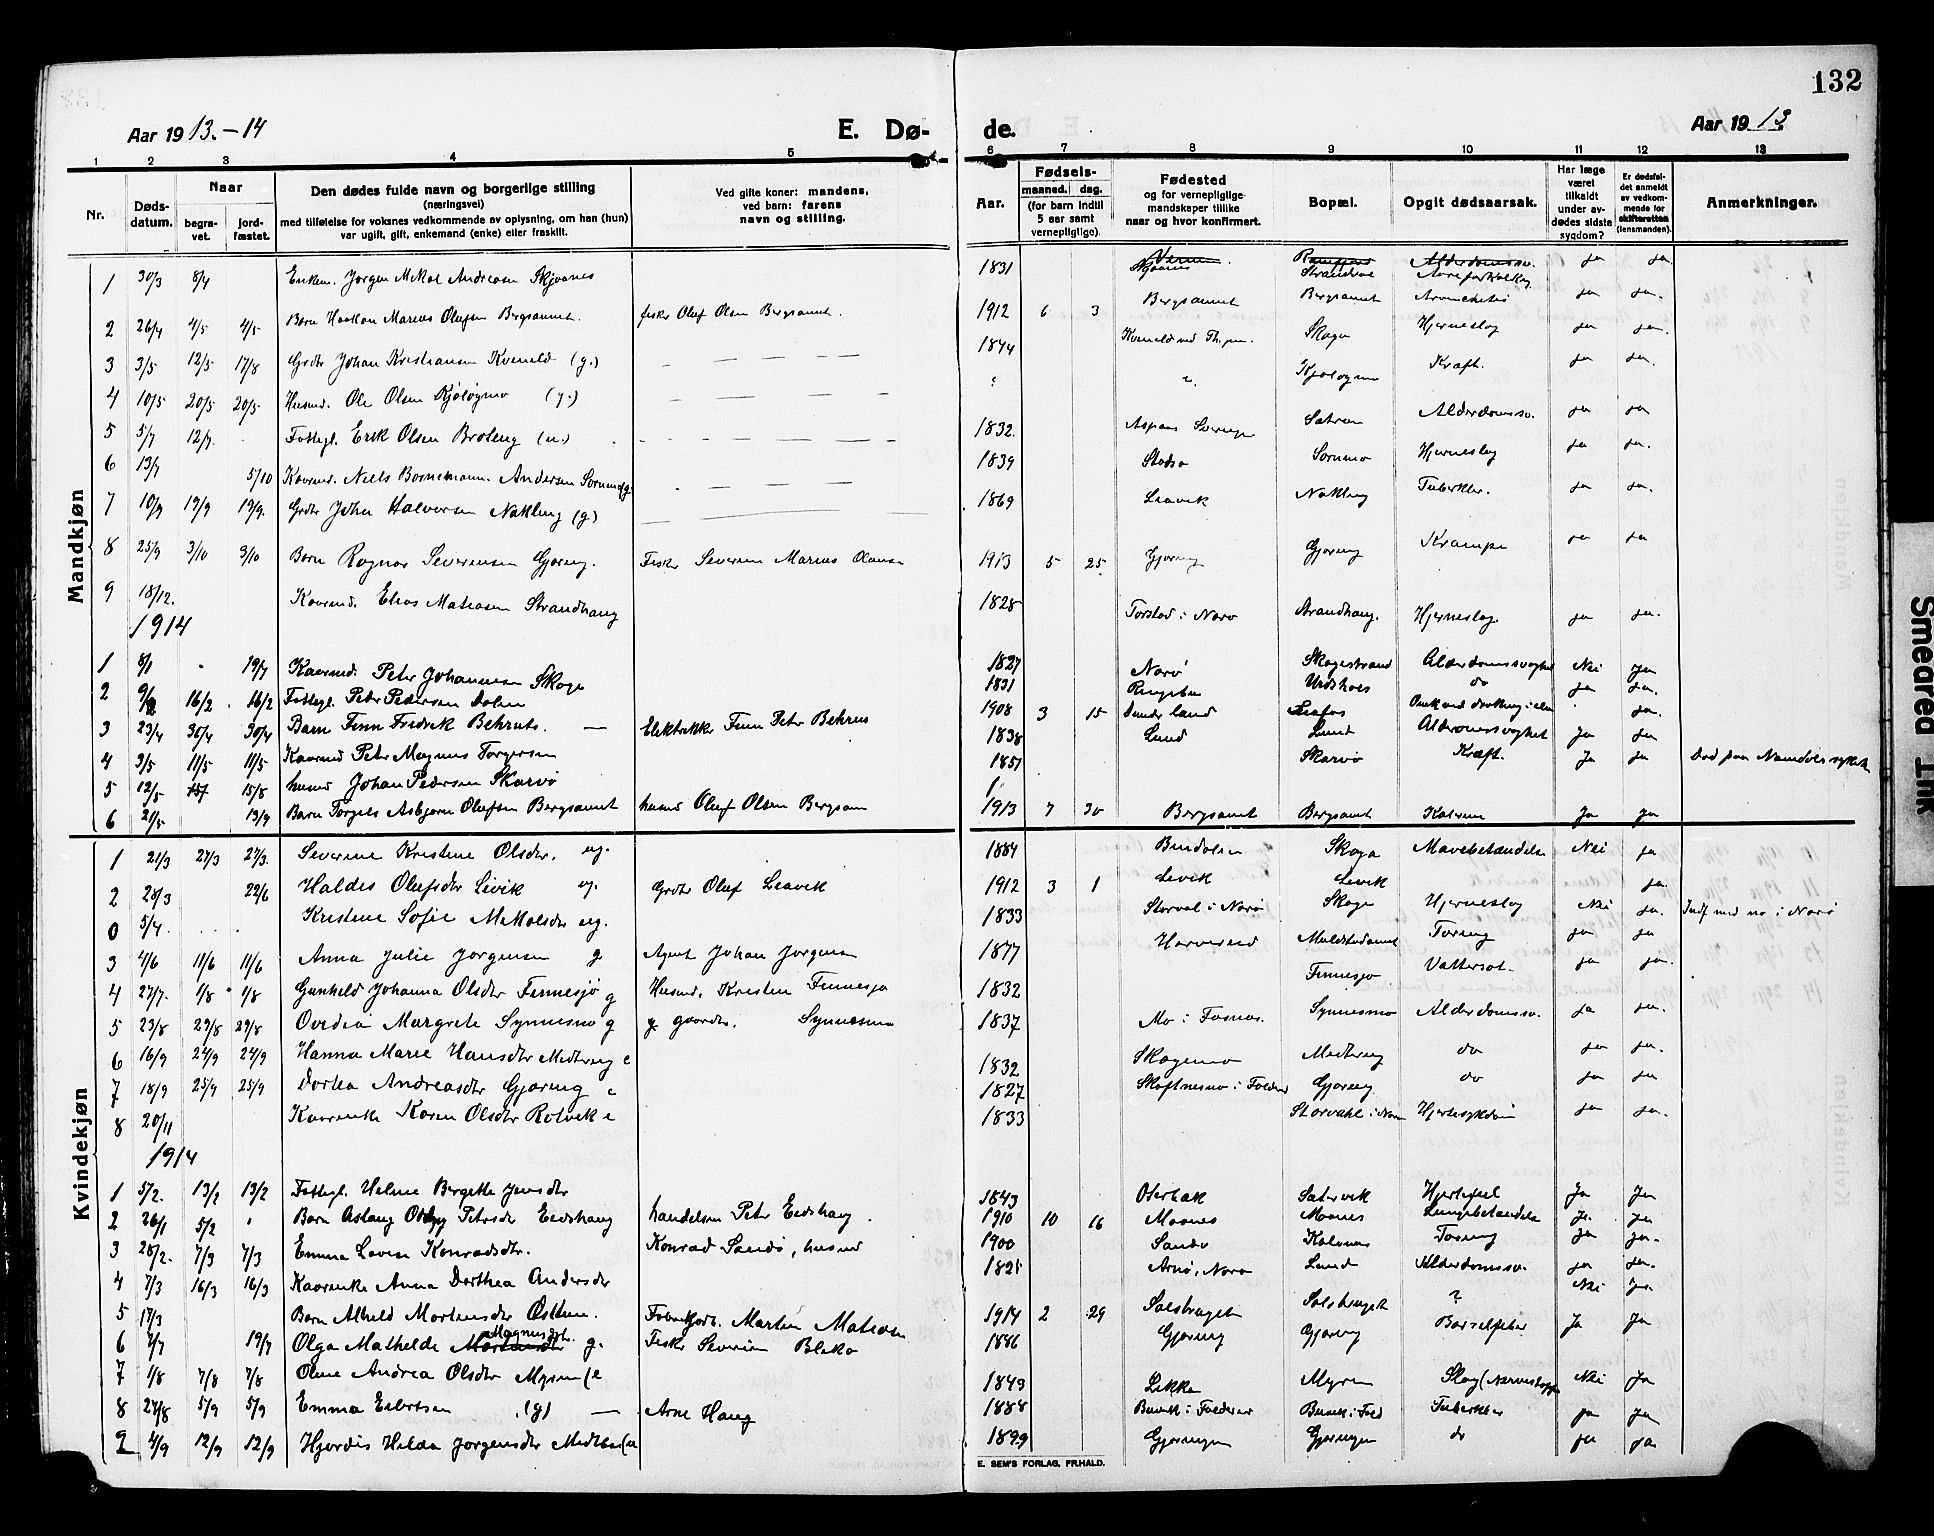 132
Aar 1913.-14 E. Dø- de. Aar 1913
1 2 3 4 5 6 7 8 9 10 11 12 13
Nr. Dødsdatum. Naar begravet. jordfæstet. Den dødes fulde navn og borgerlige stilling (næringsvei) med tilføielse for voksnes vedkommende av oplysning, om han (hun) var ugift, gift, enkemand (enke) eller fraskilt. Ved gifte koner: mandens, ved barn: farens navn og stilling. Aar. Fødsels- maaned. dag. (for barn indtil 5 aar samt vernepligtige). Fødested og for vernepligtige mandskaper tillike naar og hvor konfirmert. Bopæl. Opgit dødsaarsak. Har læge været tilkaldt under avdødes sidste sygdom? Er dødsfaldet anmeldt av vedkommende for skifteretten (lensmanden). Anmerkninger.
Mandkjøn
1 30/3 8/4 Enkem. Jørgen Mikal Andreasen Skjvones 1831 Strandvoe ja ja.
2 26/4 4/5 4/5 Barn Haakon Marius Olufsen Bergsaunet. fisker Oluf Olsen Bergsaunet. 1912 6 3 Bergsaunet Bergsaunet ja ja.
3 3/5 12/5 17/8 Grdr Johan Kristiansen Kveneld (g.) — — — — 1844 Skage Hjerneslag ja ja.
4 10/5 20/5 20/5 Husmd. Ole Olsen Kjøløgmo (g.) — — — — ? ?. Kjøløgmo Kræft. ja ja.
5 5/7 12/7. Fattigl. Erik Olsen Broteng (u.) — — — — 1832. Sætran Alderdomssv. ja ja
6 13/7 5/10 Kaarmd. Niels Bornemann Andersen Sørnmo g. — — — 1839 Stodsø Sørnmo Hjerneslag ja ja.
7 10/9 19/9 19/9. Grdr John Halvorsen Nakling (g) — — — 1869 Leavik Nakling Tuberkler. ja ja.
8 25/9 3/10 3/10 Barn Ragnar Severinsen Gjøring. Fisker Severin Marius Olausen 1913 5 25. Gjøring Gjøring Krampe ja ja
9 18/12. Kaarmd. Elias Matiasen Strandhaug 1828 Torstad i Nærø Strandhaug. Hjerneslag. ja ja.
1914
1 8/1 19/7 Kaarmd. Peter Johannesen Skage 1827 Nærø Skagestrand Alderdomssvaghet Nei Ja
2 9/2 16/2 16/2 Fattigl. Peter Pedersen Dolen 1831 Ringebu Urdshoes do ja ja.
3 23/4 30/4 30/4 Barn Finn Fredrik Behrnts. — Elektrikker Finn Peter Behrns 1908 3 15 Dunderland ja.
4 3/5 11/5 11/5 Kaarmd Peter Magnus Torgersen 1838 Lund Lund Alderdomssvaghet Ja ja
5 12/5 15/8 husmd Johan Pedersen Skarvø 1851 Skarvø Kræft. Ja Ja Død paa Namdalssykeh.
6 21/5 13/9 Barn Torgils Asbjørn Olufsen Bergsaunet husmd Oluf Olsen Bergsaun 1913 7 30 Bergsaunet Bergsaunet Ja Ja
Kvindekjøn
1 21/3 27/3 27/3. Severine Kristine Olsdtr. ug. 1884 Bindalen Skage Mavebetændelse Nei ja
2 28/3 22/6 Haldis Olufsdtr Leivik ug. Grdr Oluf Leavik 1912 3 1 Leivik Leivik ja.
0 5/4. Kristine Sofie Mikkalsdtr ug. 1833 Storval i Nærø Skage Hjerneslag Nei ja. Indf med no i Nærø
3 4/6 11/6 11/6 Anna Julie Jørgensen g Agent Johan Jørgensen 1877 Tæring ja ja
4 27/7. 1/8 1/8 Gunhild Johanna Olsdtr Finnesjø g Husmd. Kristen Finnesjø 1832 Finnesjø Vattersot. ja ja.
5 23/8 29/8 29/8 Ovedia Margrete Synnesmo g g. gaardbr. Synnesmo 1837 Mo i Fosnes. Synnesmo Alderdomssv. ja ja.
6 16/9 24/9 24/9 Hanna Marie Hansdtr Medtering e 1832 Skagemo Medtering do ja ja.
7 18/9 25/9 25/9 Dortea Andreasdtr Gjøring e 1827 Skaftnesmo i Foldereid Gjøring do ja ja.
8 20/11 Kaarenke Karen Olsdtr Rotvik e 1833 Storvahl i Nærø Hjertesykdom ja ja.
1914
1 5/2. 13/2 13/2 Fattigl. Heline Bergitte Jensdtr 1843 Oterbak Sætervik Hjertefeil Ja Ja
2 26/1 5/2 Barn Aslaug Petersdr Eidshaug handelsm Peter Eidshaug. 1910 10 16 Moanes Moanes Lungebetændelse Ja. Ja
3 28/2. 7/3 7/3 Emma Lovise Konradsdtr. Konrad Sandø, husmd 1900 Sandø Kalvnes Tæring Ja ja.
4 7/3 16/3 16/3 Kaarenke Anna Dorthea Andersdtr 1821 Arnø, Nærø Lund Alderdomssv. ja ja.
5 17/3 Barn Alhild Mortensdtr Østtun. Martin Matiasen 1914 2 29 Salsbruget Salsbruget ? Nei ja.
6 7/7 19/7 Olga Mathilde Magnusdtr. g. Fisker Severin Bleka 1886 Gjøring Gjøring Barselfeber Ja Ja
7 1/8 7/8 7/8 Oline Andrea Olsdtr Myren (e 1849 Lekke Myren Nei Ja
8 27/8 5/9 5/9 Emma Eilertsen (g) — Arne Haug 1888 Buvik i Foldereid Buvik i Fold Tuberkler ja Ja
9 4/9 12/9 12/9 Hjørdis Halda Jørgensdtr (u 1899 Gjøringen Gjøringen do ja Ja
E. SEM'S FORLAG, FR.HALD.
Smeared Ink